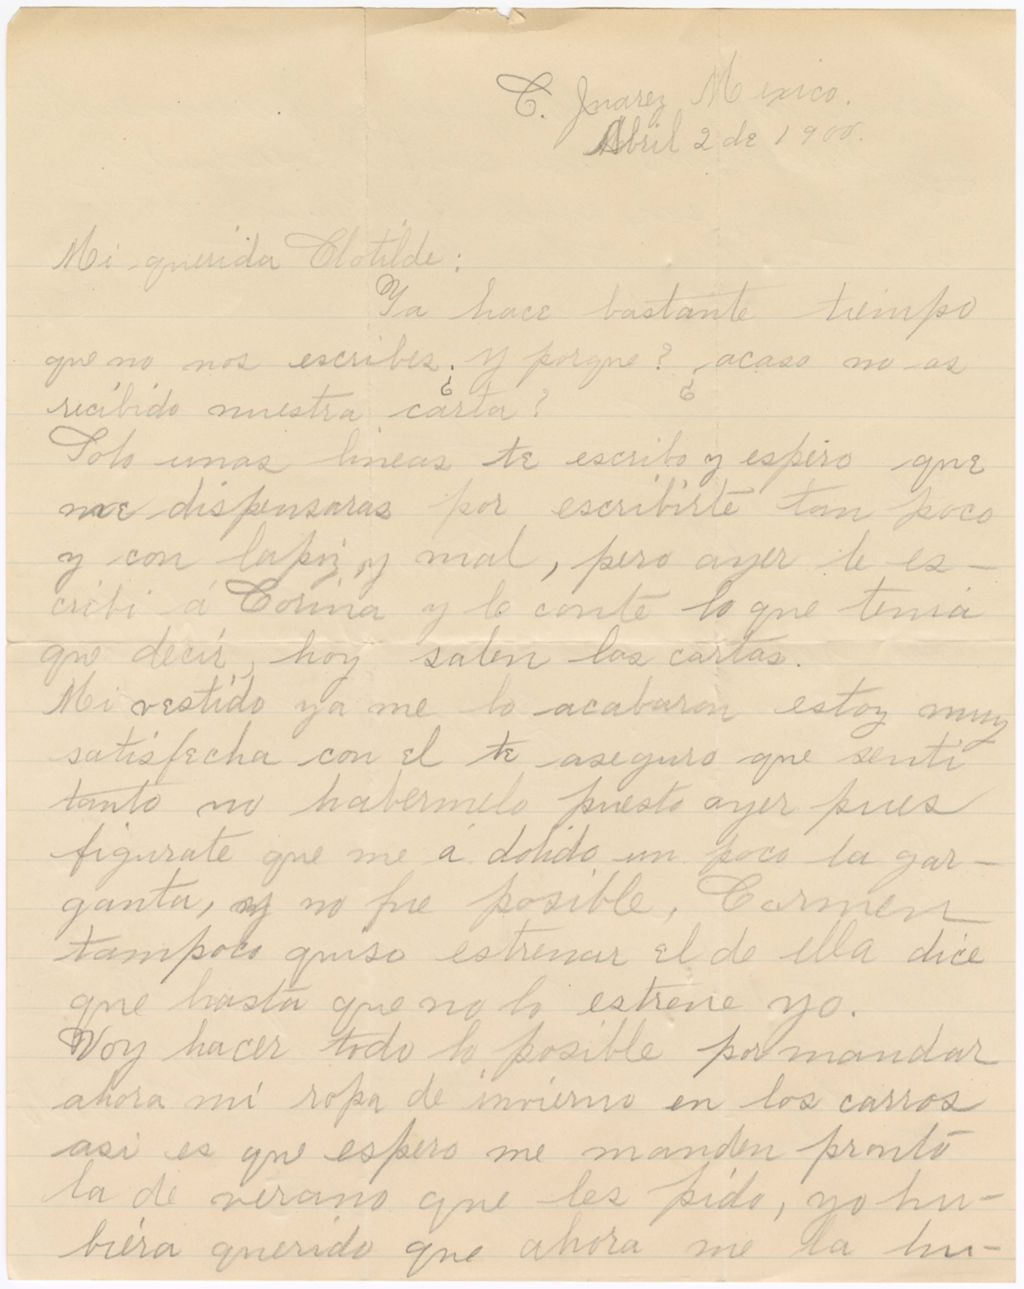 C. Juarez Mexico.
Abril 2 de 1900.
Mi querida Clotilde:
Ya hace bastante tiempo
que no nos escribes. y ¿porque? ¿acaso no as
recibido nuestra carta?
Solo unas lineas te escribo y espero que
me dispensaras por escribirte tan poco
y con lapiz, y mal, pero ayer le es-
cribi á Corina y le conté lo que tenia
que decir, hoy salen las cartas.
Mi vestido ya me lo acabaron estoy muy
satisfecha con el te aseguro que senti
tanto no habermelo puesto ayer pues
figurate que me á dolido un poco la gar-
ganta, y no fue posible, Carmen
tampoco quiso estrenar el de ella dice
que hasta que no lo estrene yo.
Voy hacer todo lo posible por mandar
ahora mi ropa de invierno en los carros
asi es que espero me manden pronto
la de verano que les pido, yo hu-
biera querido que ahora me la hu-